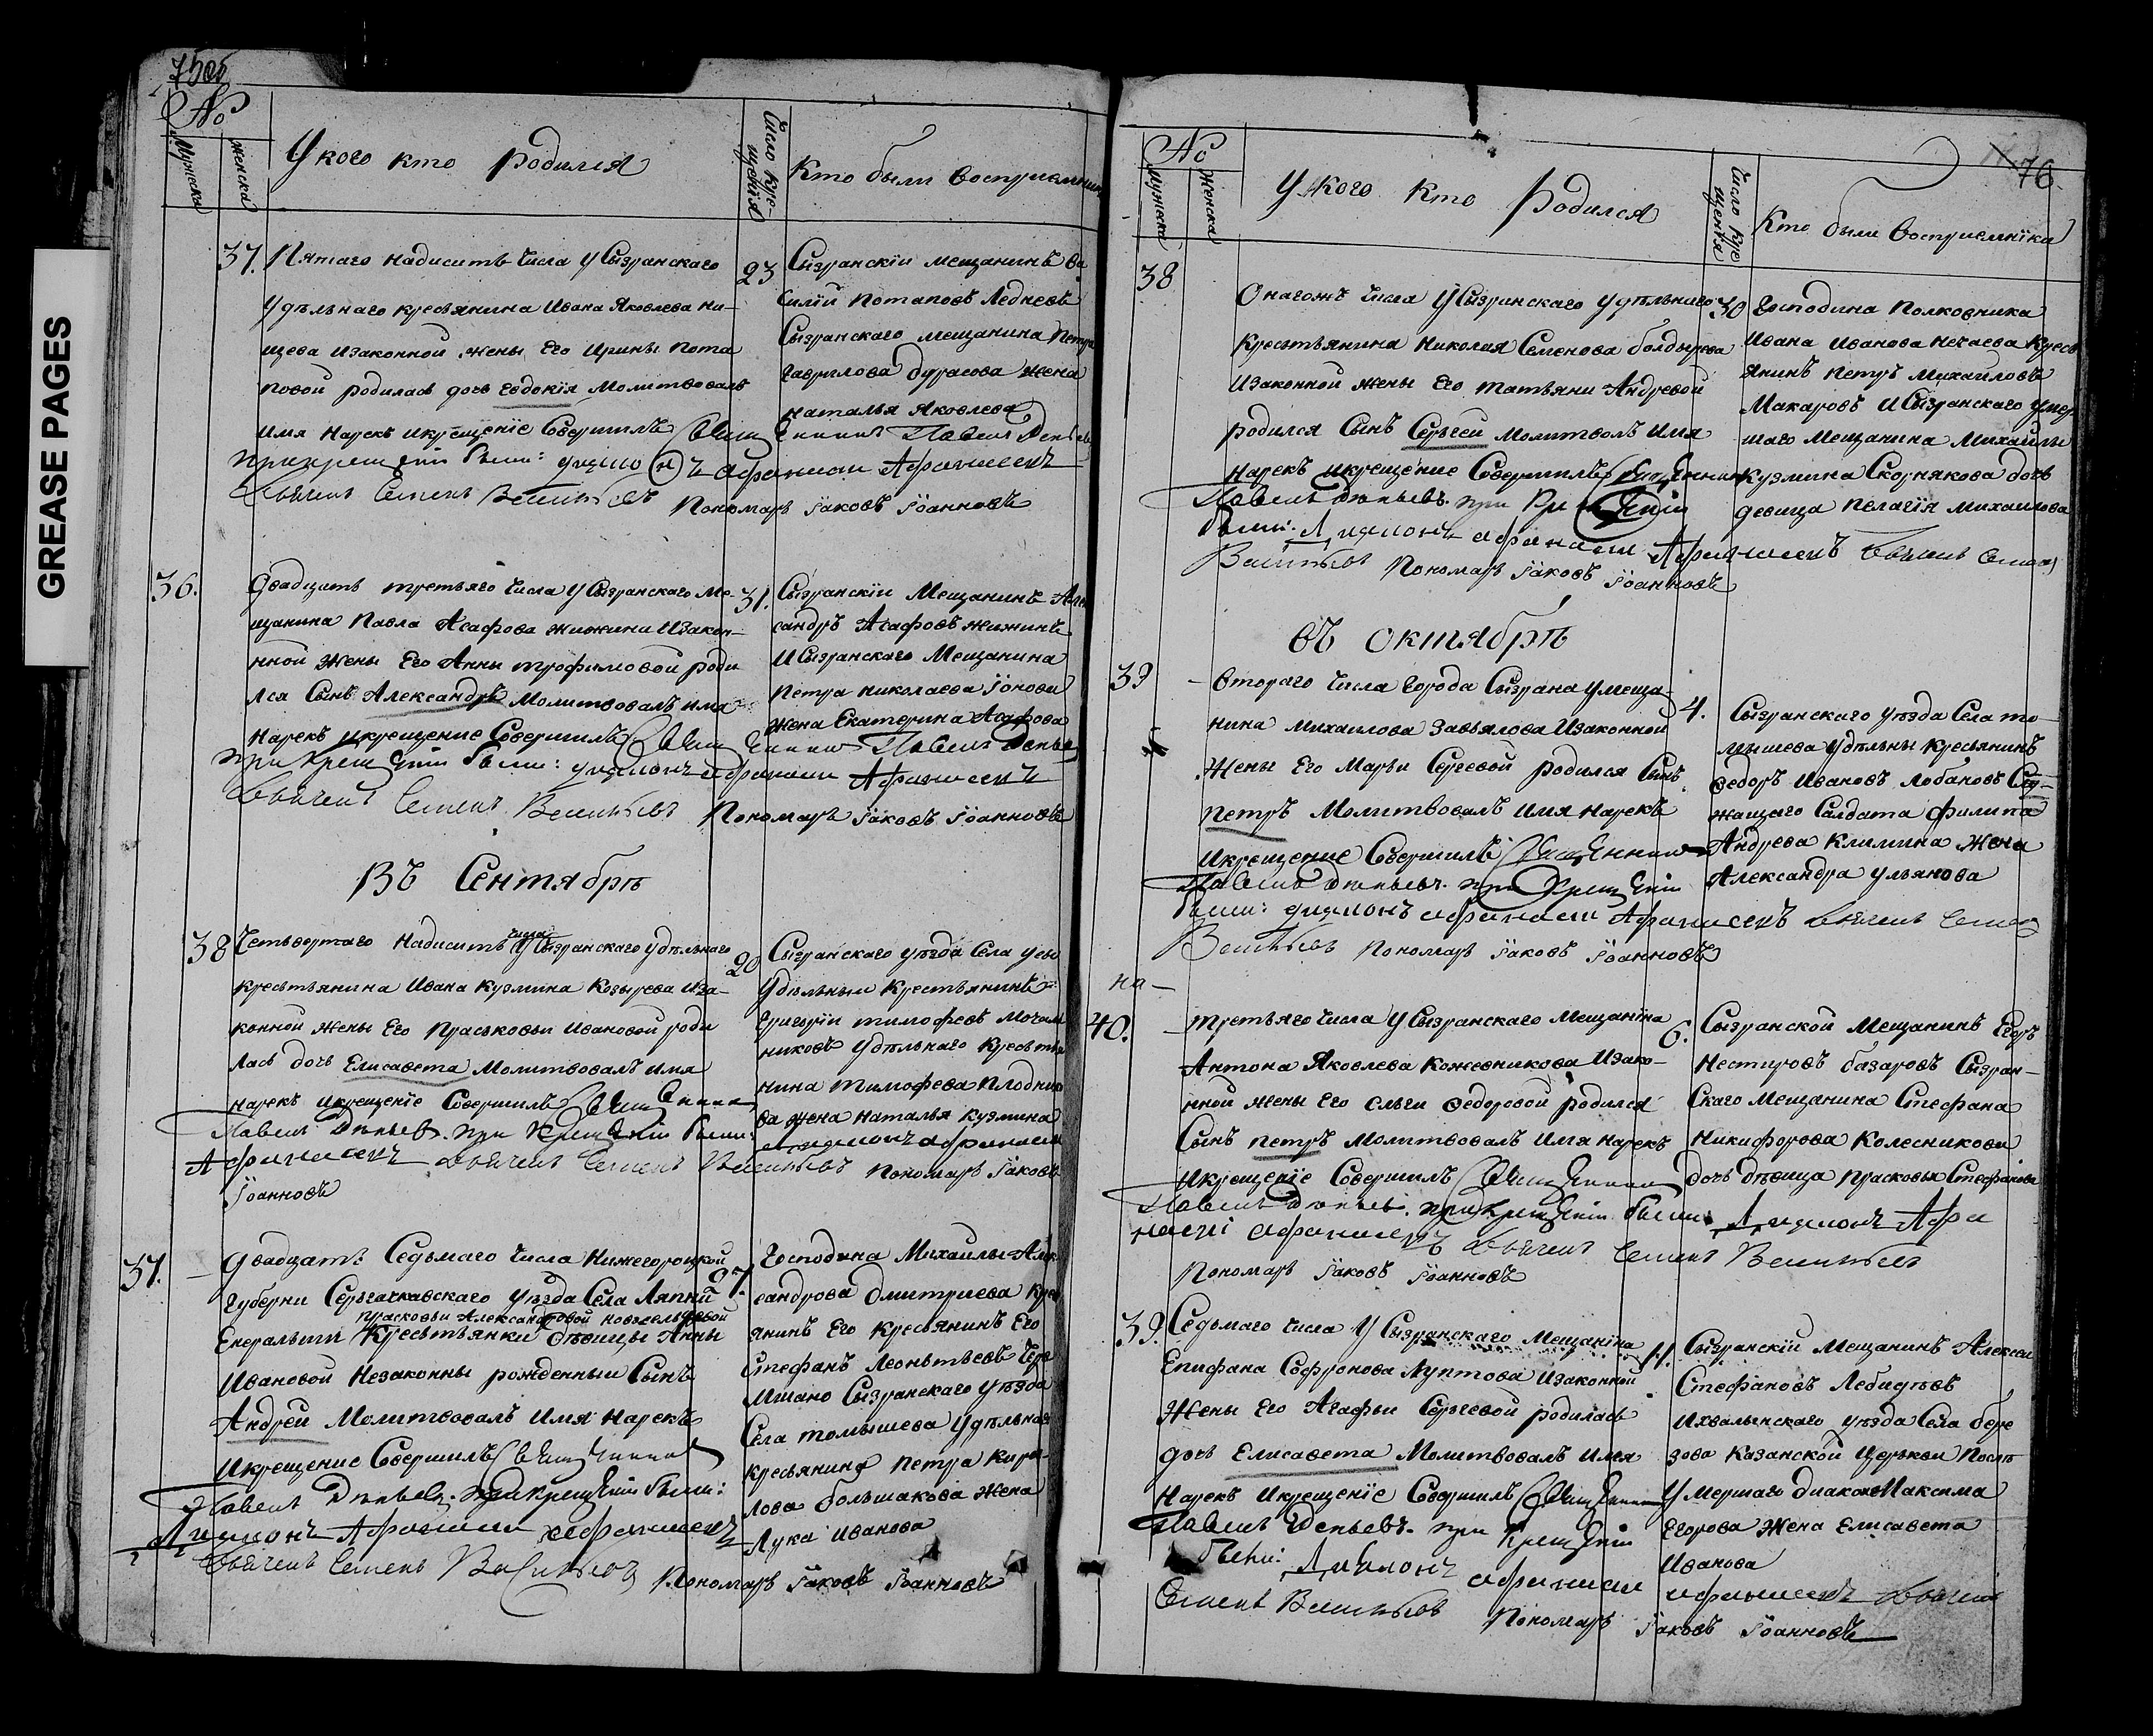 75об
GREASE PAGES
№
Мужеска
женска
У кого кто родился
Число крещенія
Кто были восприемники
37. Пятаго надисить числа у Сызранскаго
удѣльнаго кресьянина Ивана Яковлева Ни-
щева изаконной жены Его Ирины Пота
повой родилась дочь Евдокія Молитвовалъ
имя Нарекъ икрещеніе Совершилъ Священникъ Павелъ
при крещеніи были: диаконъ Афанасий Афанасьевъ
Дьячекъ Семенъ Васильевъ Пономарь Іаковъ Іоанновъ
23 Сызранскій мещанинъ Ва
силій Потаповъ Ледневъ
Сызранскаго мещанина Петра
Гаврилова Бурасова жена
Наталья Яковлева
36. Двадцать третьяго числа у Сызранскаго Ме-
щанина Павла Асафова Жижина Изакон-
нной жены Его Анны Трофимовой роди
лся Сынъ Александръ Молитвовалъ имя
Нарекъ икрещение Совершилъ Священникъ Павелъ
при крещеніи были: диаконъ Афанасий Афанасьевъ
Дьячекъ Семенъ Васильевъ Пономарь Іаковъ Іоанновъ
31. Сызранскіи Мещанинъ Але
сандръ Асафовъ Жижинъ
И Сызранскаго Мещанина
Петра Николаева Іонова
жена Екатерина Асафова
Въ Сентябрѣ
38 Четьвертаго Надисить числа У Сызранскаго удѣльнаго
крестьянина Ивана Кузмина Козырева Иза-
конной жены Его Праськовьи Ивановой роди
лась дочь Елисавета Молитвовалъ имя
нарекъ икрещеніе Совершилъ Священникъ
Павелъ при Крещеніи были:
диаконъ Афанасий
Афанасьевъ Дьячекъ Семенъ Васильевъ Пономарь Іаковъ
Іоанновъ
20 Сызранскаго уезда Села
Удѣльныи Крестьянинъ
Григоріи Тимофеевъ
никовъ Удѣльнаго Кресьтья
нина Тимофева
ва жена Наталья Кузмина
37. Двадцать Седьмаго числа Нижегороцкой
Губерни Серьгачкавскаго Уѣзда Села
Прасковьи Александровой
Енеральши Кресьтьянки дѣвицы Анны
Ивановой Незаконны рожденныи Сынъ
Андреи Молитвовалъ Имя Нарекъ
Икрещение Совершилъ Священникъ
Павелъ При крещеніи были:
Диаконъ Афанасии Афанасьевъ
Дьячекъ Семенъ Васильевъ Пономарь Іаковъ Іоанновъ
27. Господина Михаилы Алек
сандрова Дмитриева Крес
янинъ Его Кресьянинъ Его
Стефанъ Леоньтьевъ
Сызранскаго уѣзда
Села Томышева Удѣльнаго
кресьянина Петра Кири-
лова Большакова жена
Лука Иванова
76
№
мужеска
Женска
У кого кто Родился
Число крещенія
Кто были восприемніка
38
Онагожъ числа У Сызранскаго Удѣльнаго
Кресьтьянина Николая Семенова Болдырева
Изаконной жены Его Татьяни Андревой
родился Сынъ Сергѣей Молитвалъ Имя
нарекъ икрещение Совершилъ Священникъ
Павелъ при Крещеніи
были: Диаконъ Афанасии Афанасьевъ Дьячекъ Семенъ
Васильевъ Пономарь Іаковъ Іоанновъ
30 Господина Полковника
Ивана Иванова Нечаева Кресь
янинъ Петръ Михаиловъ
Макаровъ И Сызранскаго умер
шаго Мещанина Михаилы
Кузмина Скорнякова дочь
девица Пелагія Михаилова
въ Октябрѣ
39 Втораго числа Города Сызрана у меща-
нина Михаилова Завьялова Изаконной
жены Его Марьи Сергевой родился Сынъ
Петръ Молитвовалъ Имя Нарекъ
Икрещение Совершилъ Священникъ
Павелъ при Крещеніи
были: диаконъ Афанасии Афанасьевъ Дьячекъ Семенъ
Васильевъ Пономарь Іаковъ Іоанновъ
4. Сызранскаго Уѣзда Села То-
мышева Удѣльны Кресьянинъ
Федоръ Ивановъ Лобановъ Слу-
жащаго Салдата Филипа
Андрева Климина Жена
Александра Ульянова
на
40. Третьяго числа У Сызранскаго Мещаніна
Антона Яковлева Кожевникова Изако-
нной жены Его Ельги Федоровой родился
Сынъ Петръ Молитвовалъ Имя Нарекъ
Икрещеніе Совершилъ Священникъ
Павелъ при Крещеніи были Диаконъ Афа
насій Афанасьевъ Дьячекъ Семенъ Васильевъ
Пономарь Іаковъ Іоанновъ
6. Сызранской Мещанинъ Егоръ
Нестуровъ Базаровъ Сызран-
скаго Мещанина Стефана
Никифорова Колесникова
дочь дѣвица Прасковья Стефанова
39. Седьмаго числа У Сызранскаго Мещаніна
Епифана Софронова Луптова Изаконной
Жены Его Агафьи Серьгевой родилась
дочь Елисавета Молитвовалъ Имя
Нарекъ Икрещеніе Совершилъ Священникъ
Павелъ при Крещеніи
были: Диаконъ Афанасии Афанасьевъ Дьячекъ
Семенъ Васильевъ Пономарь Іаковъ Іоанновъ
11. Сызранскіи Мещанинъ Алексеи
Стефановъ Лебидѣвъ
Ихвалынскаго уѣзда Села Бере
зова Казанской Церькви Послѣ
Умершаго диакона Максима
Егорова Жена Елисавета
Иванова